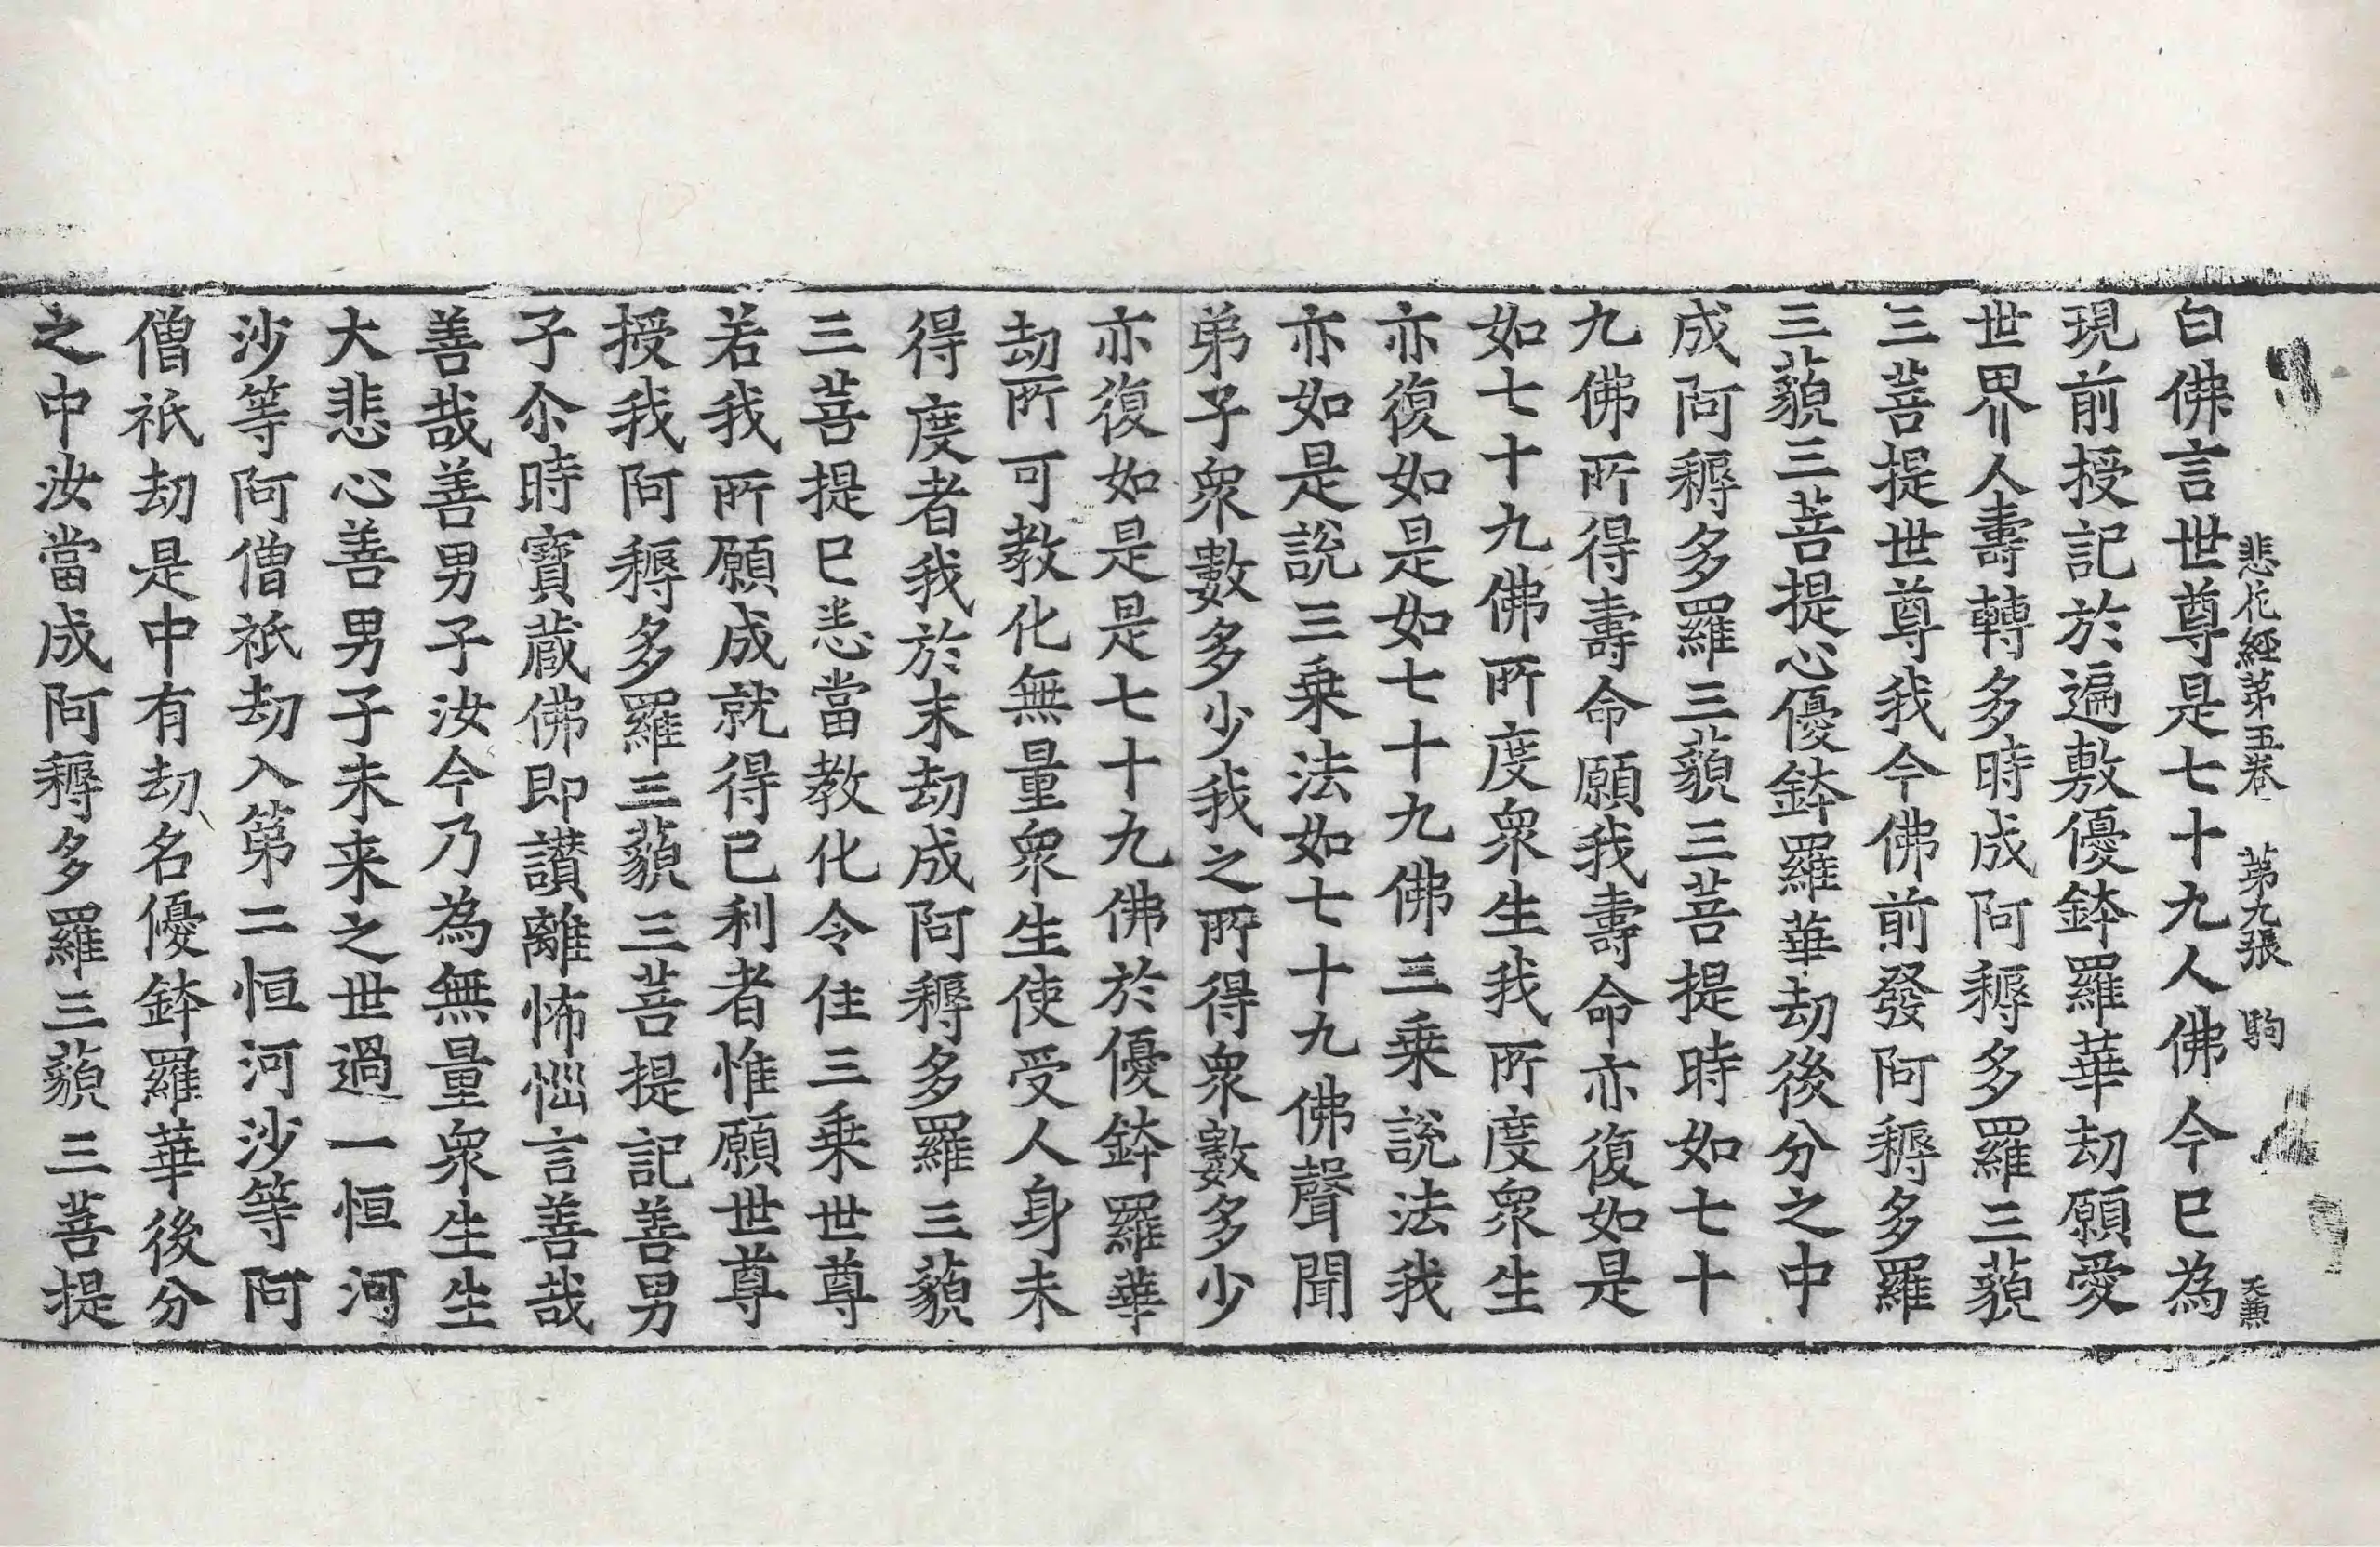 悲花經第五卷 第九張 駒 天無
白佛言世尊是七十九人佛今已為
現前授記於遍敷優鉢羅華劫願愛
世界人壽轉多時成阿耨多羅三藐
三菩提世尊我今佛前發阿耨多羅
三藐三菩提心優鉢羅華劫後分之中
成阿耨多羅三藐三菩提時如七十
九佛所得壽命願我壽命亦復如是
如七十九佛所度眾生我所度眾生
亦復如是如七十九佛三乗說法我
亦如是說三乗法如七十九佛聲聞
弟子眾數多少我之所得眾數多少
亦復如是是七十九佛於優鉢羅華
劫所可教化無量眾生使受人身未
得度者我於末劫成阿耨多羅三藐
三菩提已悉當教化令住三乗世尊
若我所願成就得已利者惟願世尊
授我阿耨多羅三藐三菩提記善男
子尒時寶蔵佛即讃離怖惱言善哉
善哉善男子汝今乃為無量眾生生
大悲心善男子未来之世過一恒河
沙等阿僧祇劫入第二恒河沙等阿
僧祇劫是中有劫名優鉢羅華後分
之中汝當成阿耨多羅三藐三菩提